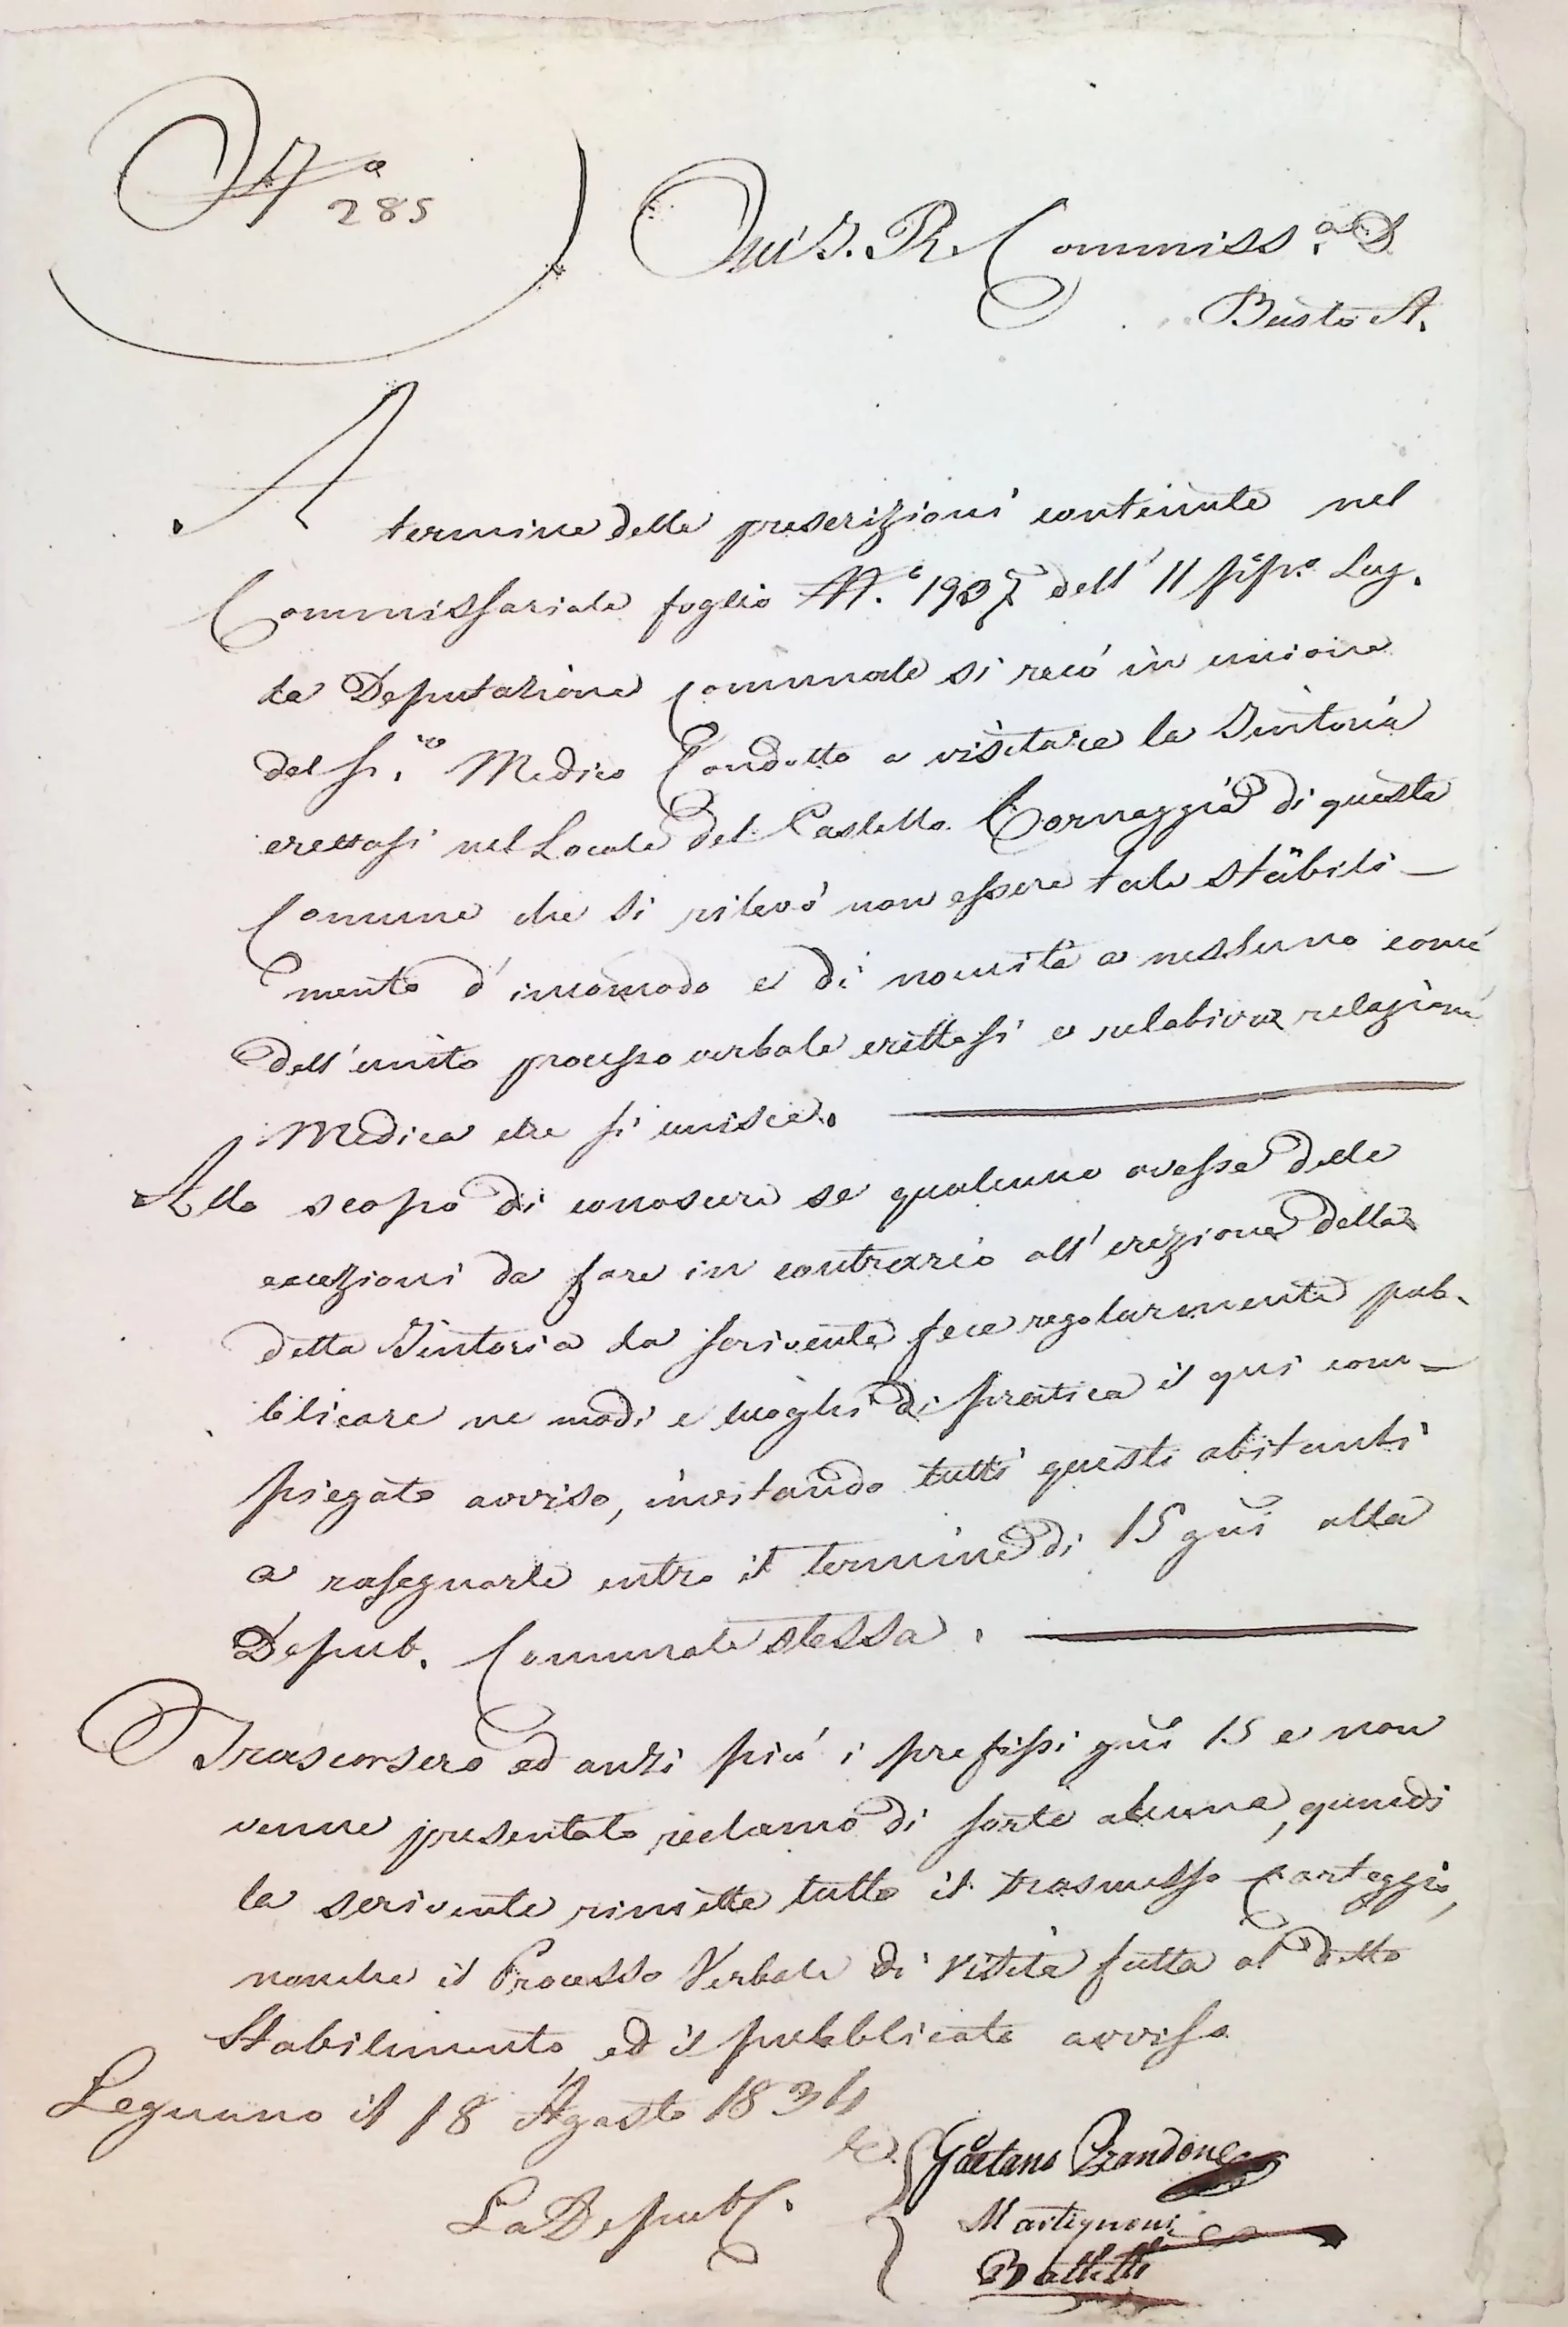 N.º 285
All' I. R. Commiss.º D.
Busto A.
A termine delle prescrizioni contenute nel
Commissariale foglio N.º 1937 dell' 11 p.p.º Lug.
la Deputazione Comunale si recò in unione
del Sig.ro Medico Condotto a visitare la Tintoria
erettasi nel Locale del Castello Cornaggia di questa
Comune che si rilevò non essere tale stabili-
mento d'incomodo e di nocività a nessuno come
dell'unito processo verbale erettosi e relativa relazione
Medica che si unisce.
Allo scopo di conoscere se qualcuno avesse delle
eccezioni da fare in contrario all'erezione della
detta Tintoria la scrivente fece regolarmente pub-
blicare ne modi e luoghi di pratica il qui com-
piegato avviso, invitando tutti questi abitanti
a rassegnarle entro il termine di 15 gni alla
Deput. Comunale stessa.
Trascorsero ed anzi più i prefissi gni 15 e non
venne presentato reclamo di sorte alcuna, quindi
la scrivente rimette tutto il trasmesso Carteggio,
nonche il Processo Verbale di visita fatta al detto
Stabilimento ed il pubblicato avviso
Legnano il 18 Agosto 1834
La Deput. C.
Gaetano Prandone
Martignoni
Battetti